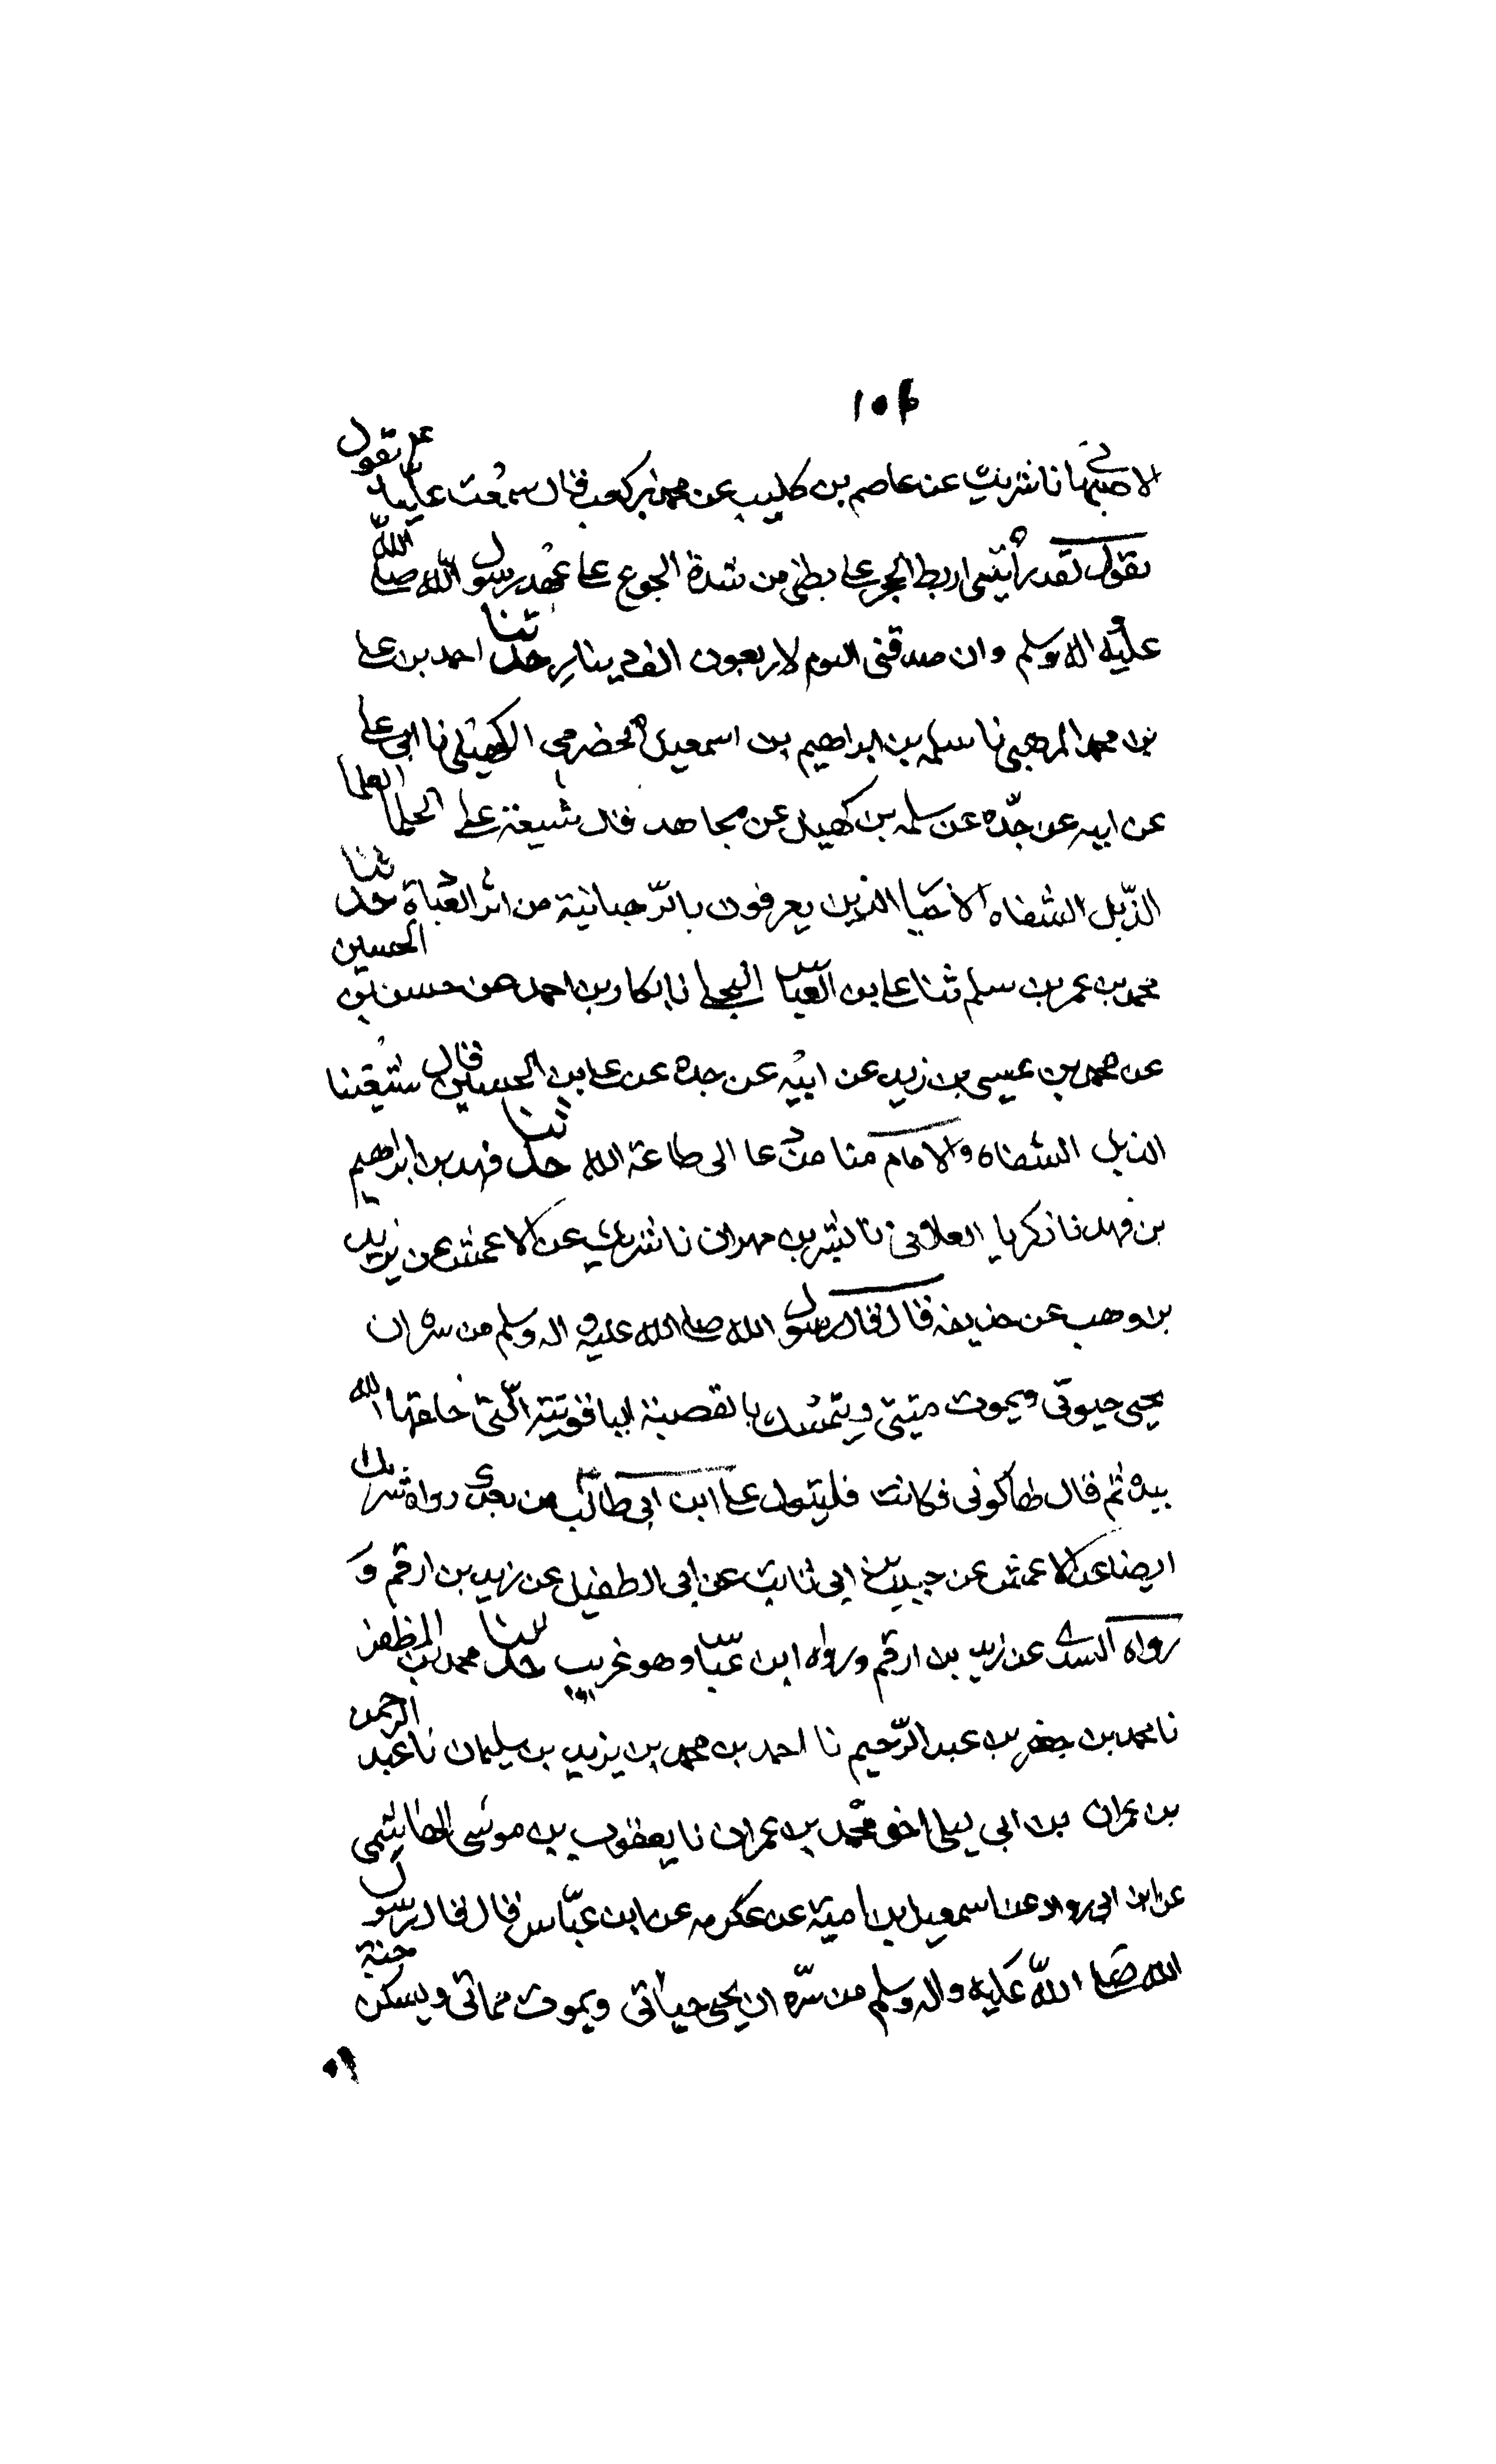 ١٠٤
الاصبهانے نا شريك عن عاصم بن كليب عن محمد بن كعب قال سمعت عليا ع م يقول
يقول لقد رأيتنى اربط الحجر على بطنى من شدة الجوع على عهد رسول الله صلى الله
عليه و اله وسلم وان صدقتى اليوم لاربعون الف دينار حدثنا احمد بن على
بن محمد المرهبى نا سلمه بن ابراهيم بن اسمعيل الحضرمي الكهيلى نا ابى على
عن ابيه عن جدّه عن سلمه بن كهيل عن مجاهد قال شيعة على الحلما العلما
الذّبل الشفاه الاخيا الذين يعرفون بالرّهبانية من اثر العباده حدثنا
محمد بن عمر بن سلم ثنا على بن العبّاس البجلى نا بكار بن احمد عن حسن بن الحسين
عن محمد بن عيسى بن زيد عن ابيه عن جده عن على بن الحسين قال شيعتنا
الذبل الشفاه والامام منا من دعا الى طاعة الله حدثنا فهد بن ابراهيم
بن فهد نا زكريا العلافى نا بشر بن مهران نا شريك عن الاعمش عن زيد
بن وهب عن حذيفه قال قال رسول الله صلى الله عليه و اله وسلم من سره ان
يحيى حيوتى ويموت ميتتى ويتمسك بالقصبة الياقوتية الّتى خلقها الله
بيده ثم قال لها كونى فكانت فليتول على ابن ابى طالب من بعدى رواه شريك
ايضا عن الاعمش عن حبيب بن ابى ثابت عن ابى الطفيل عن زيد بن ارقم و
رواه السدى عن زيد بن ارقم ورواه ابن عبّاس وهو غريب حدثنا محمد بن المظفر
نا محمد بن جعفر بن عبد الرّحيم نا احمد بن محمد بن يزيد بن سليمان نا عبد الرحمن
بن عمران بن ابى ليلى اخو محمّد بن عمران نا يعقوب بن موسى الهاشمى
عن ابن ابى رواد عن اسمعيل بن امية عن عكرمه عن ابن عبّاس قال قال رسول
الله صلى اللّه عليه واله وسلم من سرّه ان يحيى حياتى ويموت مماتى ويسكن جنة